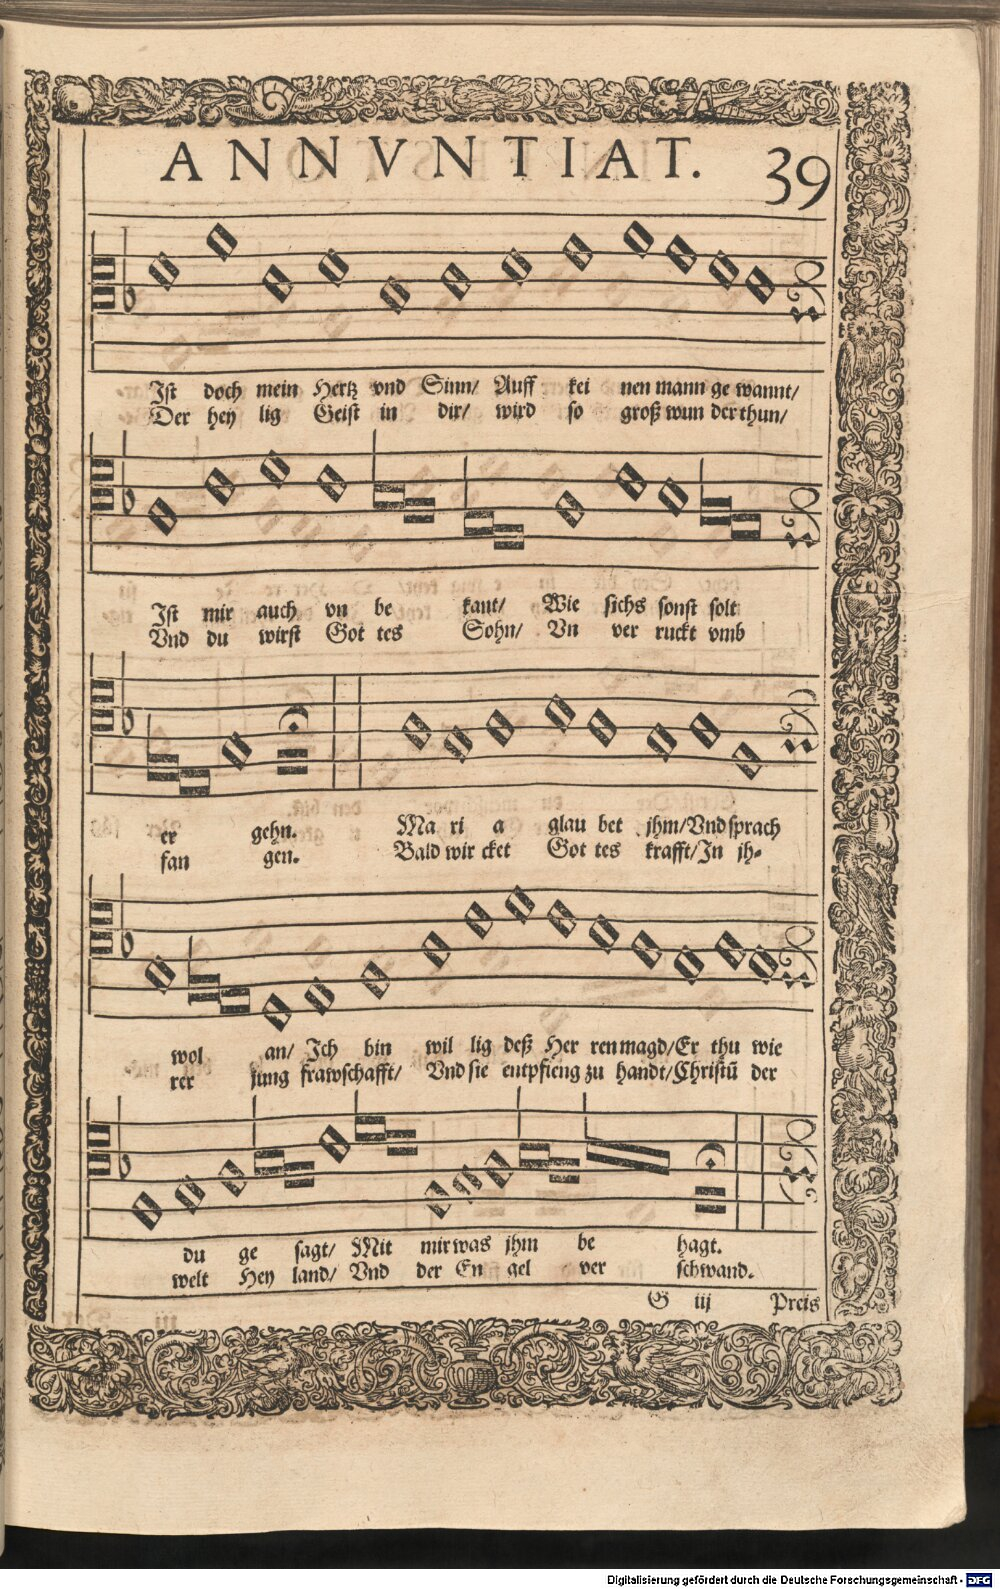 ANNVNTIAT.
39
Ist doch mein Hertz vnd Sinn/ Auff kei nen mann ge wannt/
Der hey lig Geist in dir/ wird so groß wun der thun/
Ist mir auch vn be kant/ Wie sichs sonst solt
Vnd du wirst Got tes Sohn/ Vn ver ruckt vmb
er gehn. Ma ri a glau bet jhm/ Vnd sprach
fan gen. Bald wir cket Got tes krafft/ In jh-
wol an/ Ich bin wil lig deß Her ren magd/ Er thu wie
rer jung frawschafft/ Vnd sie entpfieng zu handt/ Christū der
du ge sagt/ Mit mir was jhm be hagt.
welt Hey land/ Vnd der En gel ver schwand.
G iij Preis
Digitalisierung gefördert durch die Deutsche Forschungsgemeinschaft - DFG